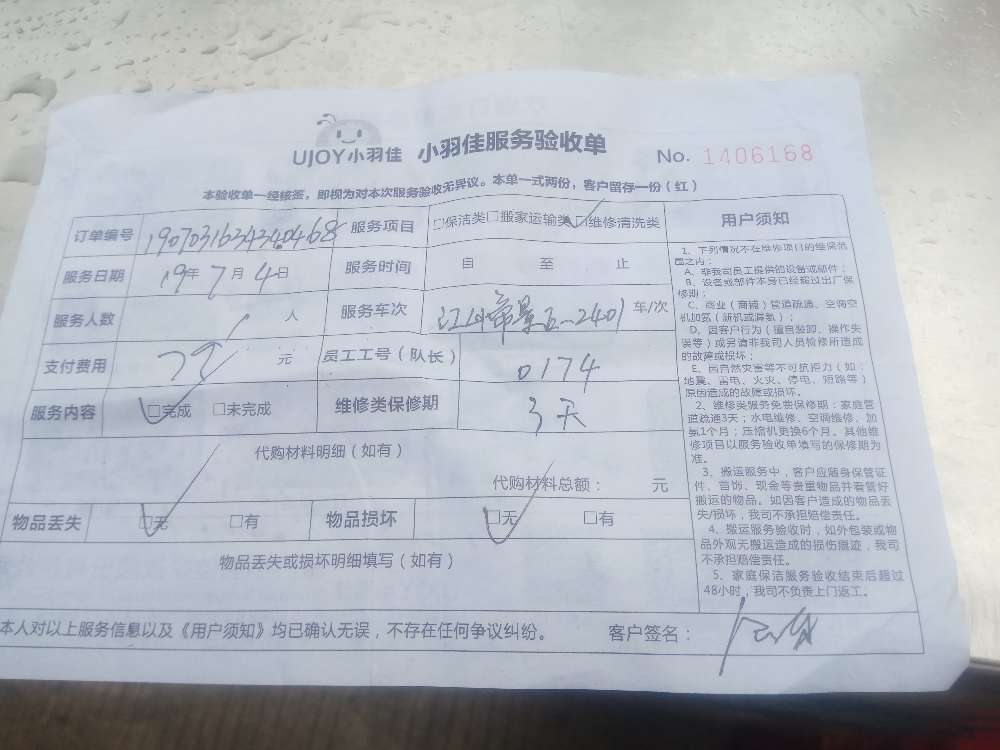 UJOY小羽佳 小羽佳服务验收单 No. 1406168
本验收单一经核签，即视为对本次服务验收无异议。本单一式两份，客户留存一份（红）
订单编号 服务项目 □保洁类□搬家运输类□维修清洗类
服务日期 19年7月4日 服务时间 自 至 止
服务人数 人 服务车次 2401 车/次
支付费用 元 员工工号（队长） 0174
服务内容 □完成 □未完成 维修类保修期 3天
代购材料明细（如有）
代购材料总额： 元
物品丢失 □无 □有 物品损坏 □无 □有
物品丢失或损坏明细填写（如有）
用户须知
1、下列情况不在维修项目的维保范
围之内：
A、非我司员工提供的设备或部件；
B、设备或部件本身已经超过出厂保
修期；
C、商业（商铺）管道疏通、空调空
机加氨（新机或漏氨）；
D、因客户行为（擅自装卸、操作失
误等）或另请非我司人员检修所造成
的故障或损坏；
E、因自然灾害等不可抗拒力（如：
地震、雷电、火灾、停电、短路等）
原因造成的故障或损坏。
2、维修类服务免费保修期：家庭管
道疏通3天；水电维修、空调维修、加
氨1个月；压缩机更换6个月。其他维
修项目以服务验收单填写的保修期为
准。
3、搬运服务中，客户应随身保管证
件、首饰、现金等贵重物品并看管好
搬运的物品。如因客户造成的物品丢
失/损坏，我司不承担赔偿责任。
4、搬运服务验收时，如外包装或物
品外观无搬运造成的损伤痕迹，我司
不承担赔偿责任。
5、家庭保洁服务验收结束后超过
48小时，我司不负责上门返工。
本人对以上服务信息以及《用户须知》均已确认无误，不存在任何争议纠纷。 客户签名：